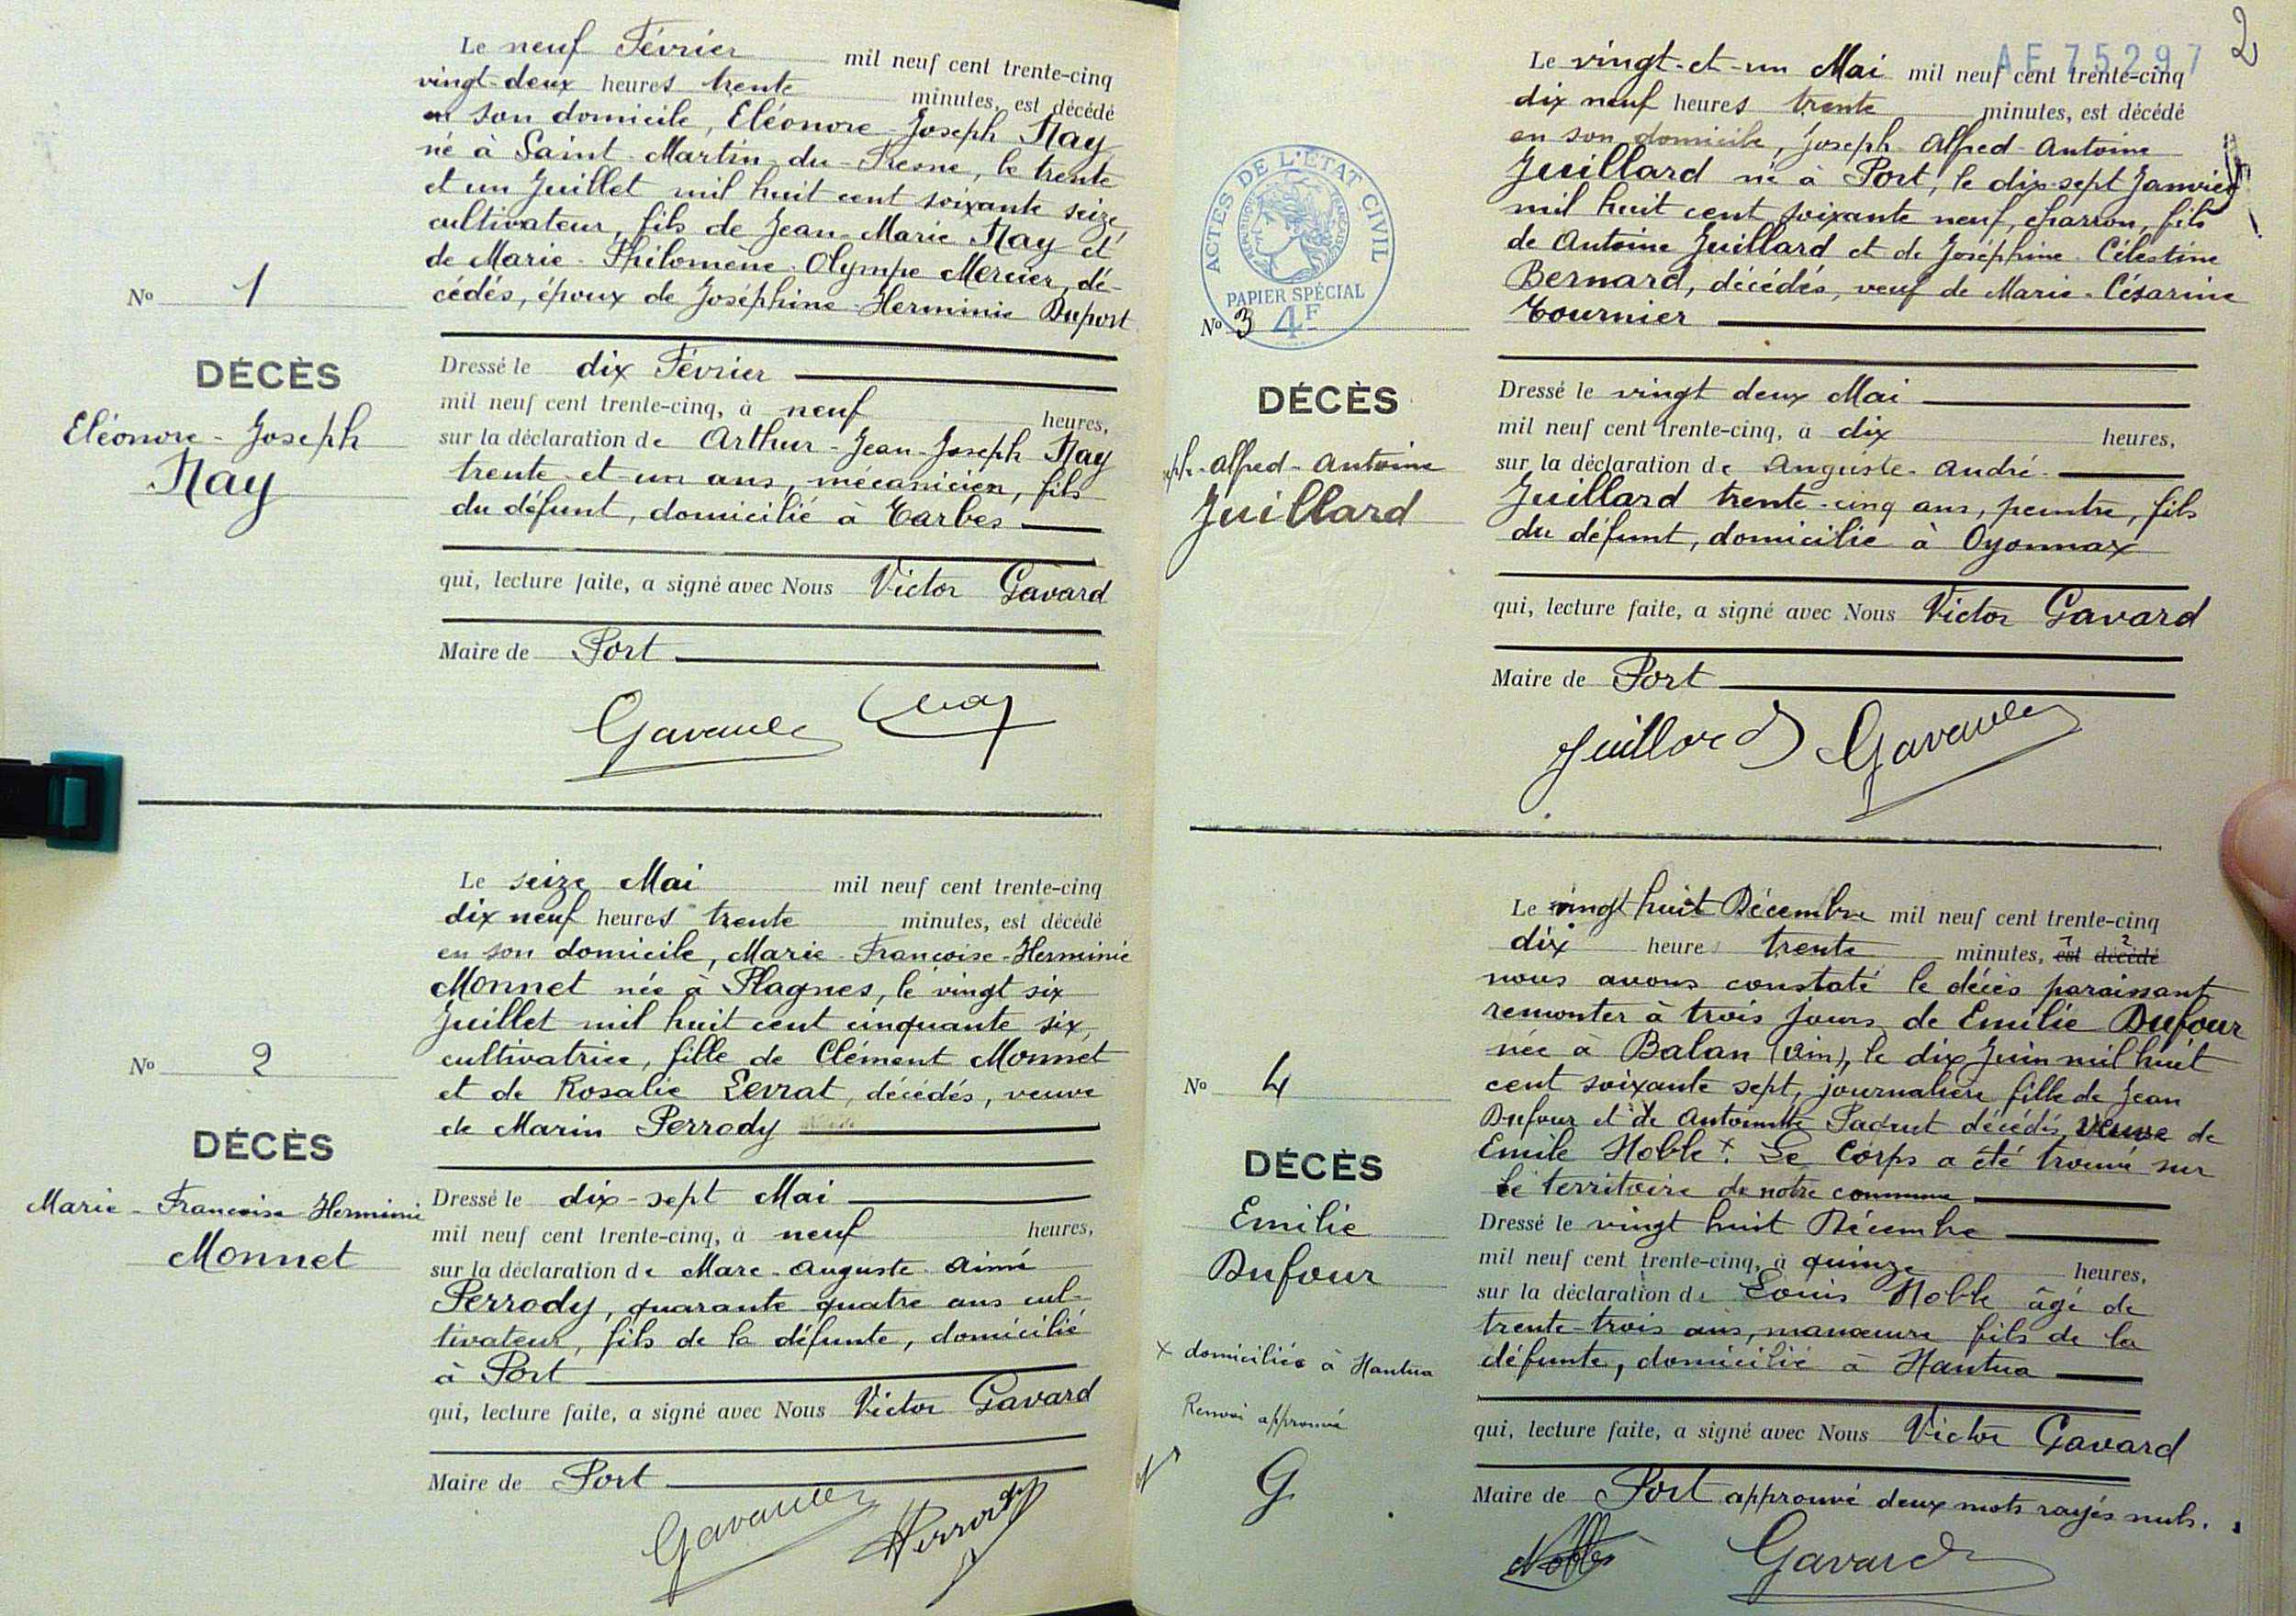 Le neuf Février mil neuf cent trente-cinq
vingt-deux heures trente minutes, est décédé
en son domicile, Eléonore-Joseph Nay
né à Saint-Martin-du-Fresne, le trente
et un Juillet mil huit cent soixante seize,
cultivateur, fils de Jean-Marie Nay et
de Marie-Philomène-Olympe Mercier, dé-
cédés, époux de Joséphine-Herminie Duport
No 1
DÉCÈS
Eléonore-Joseph
Nay
Dressé le dix Février
mil neuf cent trente-cinq, à neuf heures,
sur la déclaration de Arthur-Jean-Joseph Nay
trente-et-un ans, mécanicien, fils
du défunt, domicilié à Tarbes
qui, lecture faite, a signé avec Nous Victor Gavard
Maire de Port
Gavard Nay
Le seize Mai mil neuf cent trente-cinq
dix neuf heures trente minutes, est décédé
en son domicile, Marie-Françoise-Herminie
Monnet née à Plagnes, le vingt six
Juillet mil huit cent cinquante six,
cultivatrice, fille de Clément Monnet
et de Rosalie Levrat, décédés, veuve
de Marin Perrody
No 2
DÉCÈS
Marie-Françoise-Herminie
Monnet
Dressé le dix-sept Mai
mil neuf cent trente-cinq, à neuf heures,
sur la déclaration de Marc-Auguste-Aimé
Perrody, quarante quatre ans cul-
tivateur, fils de la défunte, domicilié
à Port
qui, lecture faite, a signé avec Nous Victor Gavard
Maire de Port
Gavard Perrody
2
AE 75297
Le vingt-et-un Mai mil neuf cent trente-cinq
dix neuf heures trente minutes, est décédé
en son domicile, Joseph-Alfred-Antoine
Juillard né à Port, le dix-sept Janvier
mil huit cent soixante neuf, charron, fils
de Antoine Juillard et de Joséphine-Célestine
Bernard, décédés, veuf de Marie-Césarine
Tournier
ACTES DE L'ÉTAT CIVIL
RÉPUBLIQUE FRANÇAISE
PAPIER SPÉCIAL
4F
No 3
DÉCÈS
ph-Alfred-Antoine
Juillard
Dressé le vingt deux Mai
mil neuf cent trente-cinq, à dix heures,
sur la déclaration de Auguste-André
Juillard trente-cinq ans, peintre, fils
du défunt, domicilié à Oyonnax
qui, lecture faite, a signé avec Nous Victor Gavard
Maire de Port
Juillard Gavard
Le vingt huit Décembre mil neuf cent trente-cinq
dix heures trente minutes, est décédé
nous avons constaté le décès paraissant
remonter à trois jours de Emilie Dufour
née à Balan (Ain), le dix Juin mil huit
cent soixante sept, journalière fille de Jean
Dufour et de Antoinette décédés, veuve de
Emile Noble x. Le corps a été trouvé sur
le territoire de notre commune
No 4
DÉCÈS
Emilie
Dufour
x domiciliée à Nantua
Renvoi approuvé
N
G
Dressé le vingt huit Décembre
mil neuf cent trente-cinq, à quinze heures,
sur la déclaration de Louis Noble âgé de
trente-trois ans, manœuvre fils de la
défunte, domicilié à Nantua
qui, lecture faite, a signé avec Nous Victor Gavard
Maire de Port approuvé deux mots rayés nuls.
Noble Gavard